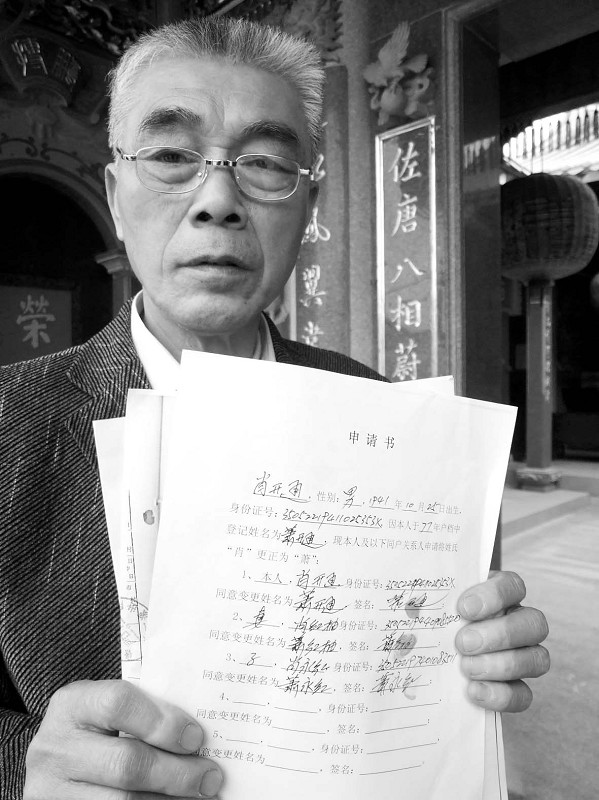 佐唐八相蔚
凤翼
荣
申请书
肖开通，性别：男，1941年10月25日出生，
身份证号：35052219411025353X，因本人于77年户档中
登记姓名为萧开通，现本人及以下同户关系人申请将姓氏
“肖”更正为“萧”；
1、本人，肖开通身份证号：35052219411025353X
同意变更姓名为萧开通，签名：萧开通
2、妻，肖红柑身份证号：
同意变更姓名为萧红柑，签名：萧红柑
3、子，肖永红，身份证号：
同意变更姓名为萧永红，签名：萧永红；
4、______，______，身份证号：______；
同意变更姓名为______，签名：______；
5、______，______，身份证号：______；
同意变更姓名为______，签名：______；